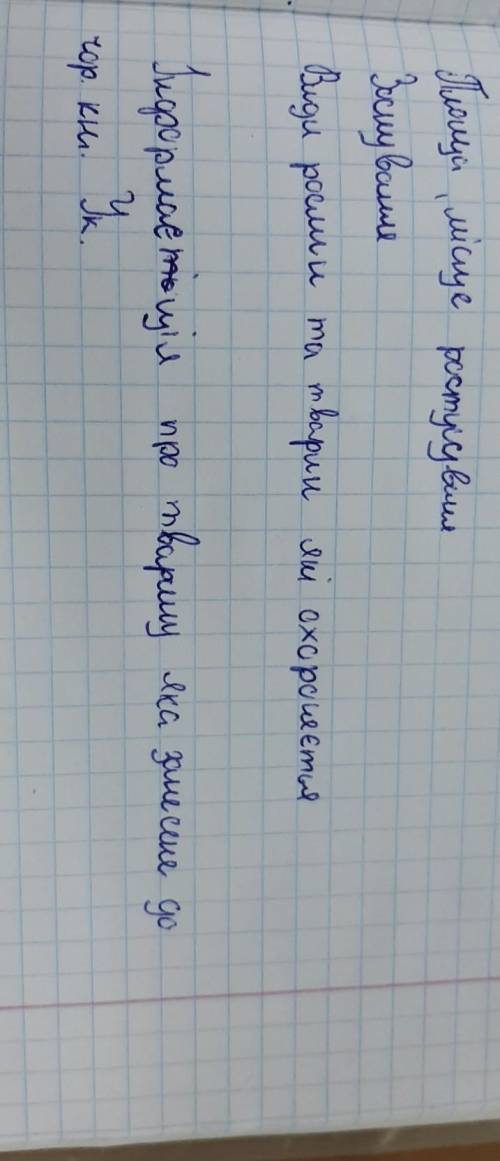 Площа, місце розтушування
Заснування
Види рослин та тварин які охороняєтья
Інформаєтьція про тварину яка занесене до
чор. кни. Ук.